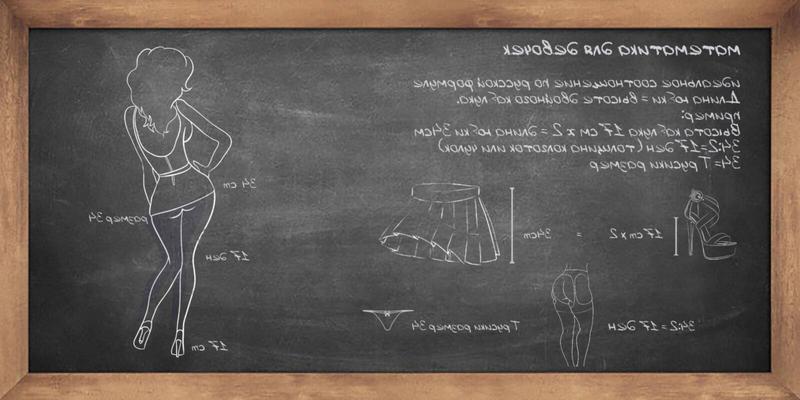 математика для девочек
идеальное соотношение по русской формуле
Длина юбки = высоте двойного каблука.
пример:
Высота каблука 17 см x 2 = длина юбки 34см
34:2=17 ден (толщина колготок или чулок)
34= Трусики размер
34 см
размер 34
17 ден
17 см
17 cm x 2
=
34cm
34:2 = 17 ден
Трусики размер 34